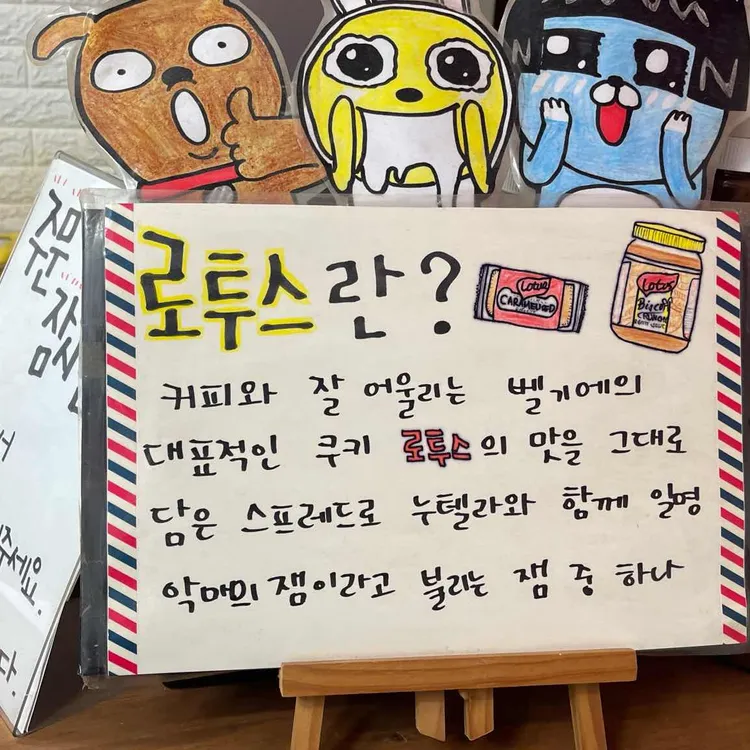 로투스란?
Lotus
CARAMELIZED
Lotus
Biscoff
CRUNCHY
커피와 잘 어울리는 벨기에의
대표적인 쿠키 로투스의 맛을 그대로
담은 스프레드로 누텔라와 함께 일명
악마의 잼이라고 불리는 잼 중 하나
주세요.
다.